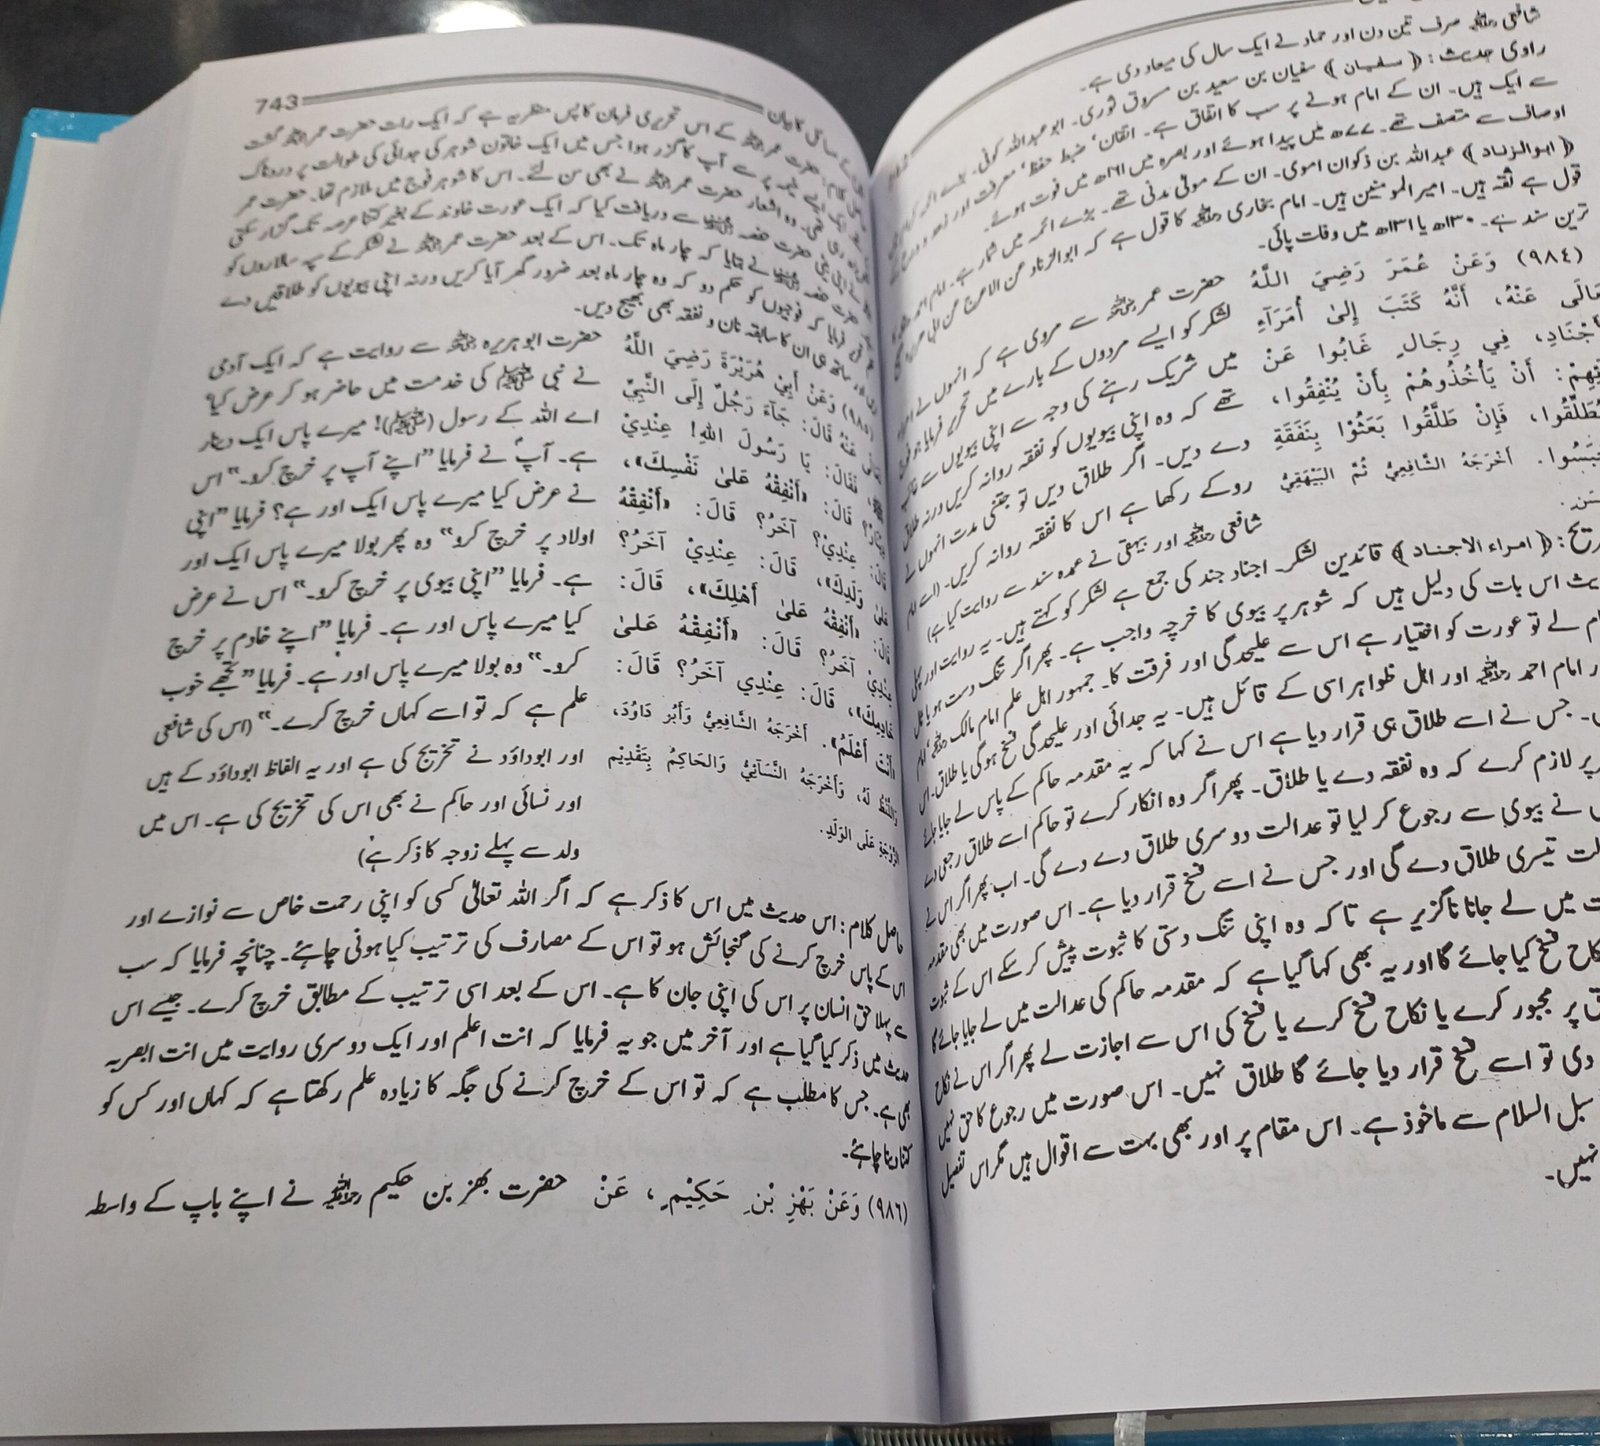 شافعی رحمہ اللہ صرف تین دن اور حماد نے ایک سال کی میعاد دی ہے۔
راوی حدیث: ﴿سفیان﴾ سفیان بن سعید بن مسروق ثوری۔ ابو عبداللہ کوفی۔
سے ایک ہیں۔ ان کے امام ہونے پر سب کا اتفاق ہے۔ اتقان، ضبط حفظ، معرفت اور زہد و
اوصاف سے متصف تھے۔ ۷۷ھ میں پیدا ہوئے اور بصرہ میں ۱۶۱ھ میں فوت ہوئے۔
﴿ابوالزناد﴾ عبداللہ بن ذکوان اموی۔ ان کے مولیٰ مدنی تھے۔ بڑے ائمہ میں شمار ہے۔ امام احمد
قول ہے ثقہ ہیں۔ امیر المومنین ہیں۔ امام بخاری رحمہ اللہ کا قول ہے کہ ابوالزناد عن الاعرج عن ابی
ترین سند ہے۔ ۱۳۰ھ یا ۱۳۱ھ میں وفات پائی۔
(٩٨٤) وَعَنْ عُمَرَ رَضِيَ اللَّهُ حضرت عمر رضی اللہ عنہ سے مروی ہے کہ انہوں نے
تَعَالَى عَنْهُ، أَنَّهُ كَتَبَ إِلىٰ أُمَرَآءِ لشکر کو ایسے مردوں کے بارے میں تحریر فرمایا جو
الأَجْنَادِ، فِي رِجَالٍ غَابُوا عَنْ میں شریک رہنے کی وجہ سے اپنی بیویوں سے
أَنْ يَأْخُذُوهُمْ بِأَنْ يُنْفِقُوا، تھے کہ وہ اپنی بیویوں کو نفقہ روانہ کریں ورنہ طلاق
يُطَلِّقُوا، فَإِنْ طَلَّقُوا بَعَثُوْا بِنَفَقَةِ دے دیں۔ اگر طلاق دیں تو جتنی مدت انہوں نے
حَبَسُوا. أَخْرَجَهُ الشَّافِعِيُّ ثُمَّ الْبَيْهَقِيُّ روکے رکھا ہے اس کا نفقہ روانہ کریں۔ (اسے امام
شافعی رحمہ اللہ اور بیہقی نے عمدہ سند سے روایت کیا ہے)
﴿امراء الاجناد﴾ قائدین لشکر۔ اجناد جند کی جمع ہے لشکر کو کہتے ہیں۔ یہ روایت اور
اس بات کی دلیل ہیں کہ شوہر پر بیوی کا خرچہ واجب ہے۔ پھر اگر تنگ دست ہو یا
لے تو عورت کو اختیار ہے اس سے علیحدگی اور فرقت کا۔ جمہور اہل علم امام مالک رحمہ اللہ، امام
امام احمد رحمہ اللہ اور اہل ظواہر اسی کے قائل ہیں۔ یہ جدائی اور علیحدگی فسخ ہوگی یا طلاق۔ اس
جس نے اسے طلاق ہی قرار دیا ہے اس نے کہا کہ یہ مقدمہ حاکم کے پاس لے جایا جائے
پر لازم کرے کہ وہ نفقہ دے یا طلاق۔ پھر اگر وہ انکار کرے تو حاکم اسے طلاق رجعی دے
نے بیوی سے رجوع کر لیا تو عدالت دوسری طلاق دے دے گی۔ اب پھر اگر اس نے
تیسری طلاق دے گی اور جس نے اسے فسخ قرار دیا ہے۔ اس صورت میں بھی مقدمہ
میں لے جانا ناگزیر ہے تاکہ وہ اپنی تنگ دستی کا ثبوت پیش کر سکے اس کے ثبوت
فسخ کیا جائے گا اور یہ بھی کہا گیا ہے کہ مقدمہ حاکم کی عدالت میں لے جایا جائے گا
پر مجبور کرے یا نکاح فسخ کرے یا فسخ کی اس سے اجازت لے پھر اگر اس نے نکاح
دی تو اسے فسخ قرار دیا جائے گا طلاق نہیں۔ اس صورت میں رجوع کا حق نہیں
سبل السلام سے ماخوذ ہے۔ اس مقام پر اور بھی بہت سے اقوال ہیں مگر اس تفصیل
نہیں۔
743 کے مسائل کا بیان
حضرت عمر رضی اللہ عنہ کے اس تحریری فرمان کا پس منظر یہ ہے کہ ایک رات حضرت عمر رضی اللہ عنہ گشت
پر سے آپ کا گزر ہوا جس میں ایک خاتون شوہر کی جدائی کی طوالت پر دردناک
وہ اشعار حضرت عمر رضی اللہ عنہ نے بھی سن لئے۔ اس کا شوہر فوج میں ملازم تھا۔ حضرت عمر
حضرت حفصہ رضی اللہ عنہا سے دریافت کیا کہ ایک عورت خاوند کے بغیر کتنا عرصہ تک گزار سکتی
حضرت حفصہ رضی اللہ عنہا نے بتایا کہ چار ماہ تک۔ اس کے بعد حضرت عمر رضی اللہ عنہ نے لشکر کے سپہ سالاروں کو
فرمایا کہ فوجیوں کو حکم دو کہ وہ چار ماہ بعد ضرور گھر آیا کریں ورنہ اپنی بیویوں کو طلاقیں دے
ساتھ ہی ان کا سابقہ نان و نفقہ بھی بھیج دیں۔
(٩٨٥) وَعَنْ أَبِيْ هُرَيْرَةَ رَضِيَ اللَّهُ حضرت ابوہریرہ رضی اللہ عنہ سے روایت ہے کہ ایک آدمی
عَنْهُ قَالَ: جَآءَ رَجُلٌ إِلَى النَّبِيِّ نے نبی ﷺ کی خدمت میں حاضر ہو کر عرض کیا؟
فَقَالَ: يَا رَسُولَ اللهِ! عِنْدِيْ اے اللہ کے رسول (ﷺ)! میرے پاس ایک دینار
قَالَ: «أَنْفِقْهُ عَلىٰ نَفْسِكَ»، ہے۔ آپؐ نے فرمایا ”اپنے آپ پر خرچ کرو۔“ اس
عِنْدِيْ؟ آخَرُ؟ قَالَ: «أَنْفِقْهُ نے عرض کیا میرے پاس ایک اور ہے؟ فرمایا ”اپنی
عَلىٰ وَلَدِكَ»، قَالَ: عِنْدِيْ آخَرُ؟ اولاد پر خرچ کرو“ وہ پھر بولا میرے پاس ایک اور
قَالَ: «أَنْفِقْهُ عَلىٰ أَهْلِكَ»، قَالَ: ہے۔ فرمایا ”اپنی بیوی پر خرچ کرو۔“ اس نے عرض
عِنْدِيْ آخَرُ؟ قَالَ: «أَنْفِقْهُ عَلىٰ کیا میرے پاس اور ہے۔ فرمایا ”اپنے خادم پر خرچ
خَادِمِكَ»، قَالَ: عِنْدِي آخَرُ؟ قَالَ: کرو۔“ وہ بولا میرے پاس اور ہے۔ فرمایا ”تجھے خوب
«أَنْتَ أَعْلَمُ». أَخْرَجَهُ الشَّافِعِيُّ وَأَبُو دَاوُدَ، علم ہے کہ تو اسے کہاں خرچ کرے۔“ (اس کی شافعی
وَاللَّفْظُ لَهُ، وَأَخْرَجَهُ النَّسَآئِيُّ وَالحَاكِمُ بِتَقْدِيْمِ اور ابوداؤد نے تخریج کی ہے اور یہ الفاظ ابوداؤد کے ہیں
الزَّوْجَةِ عَلَى الوَلَدِ. اور نسائی اور حاکم نے بھی اس کی تخریج کی ہے۔ اس میں
ولد سے پہلے زوجہ کا ذکر ہے)
حاصل کلام: اس حدیث میں اس کا ذکر ہے کہ اگر اللہ تعالیٰ کسی کو اپنی رحمت خاص سے نوازے اور
اس کے پاس خرچ کرنے کی گنجائش ہو تو اس کے مصارف کی ترتیب کیا ہونی چاہئے۔ چنانچہ فرمایا کہ سب
سے پہلا حق انسان پر اس کی اپنی جان کا ہے۔ اس کے بعد اسی ترتیب کے مطابق خرچ کرے۔ جیسے اس
حدیث میں ذکر کیا گیا ہے اور آخر میں جو یہ فرمایا کہ انت اعلم اور ایک دوسری روایت میں انت ابصر بہ
بھی ہے۔ جس کا مطلب ہے کہ تو اس کے خرچ کرنے کی جگہ کا زیادہ علم رکھتا ہے کہ کہاں اور کس کو
کتنا دینا چاہئے۔
(٩٨٦) وَعَنْ بَهْزِ بْنِ حَكِيْمٍ، عَنْ حضرت بهز بن حکیم رحمہ اللہ نے اپنے باپ کے واسطہ